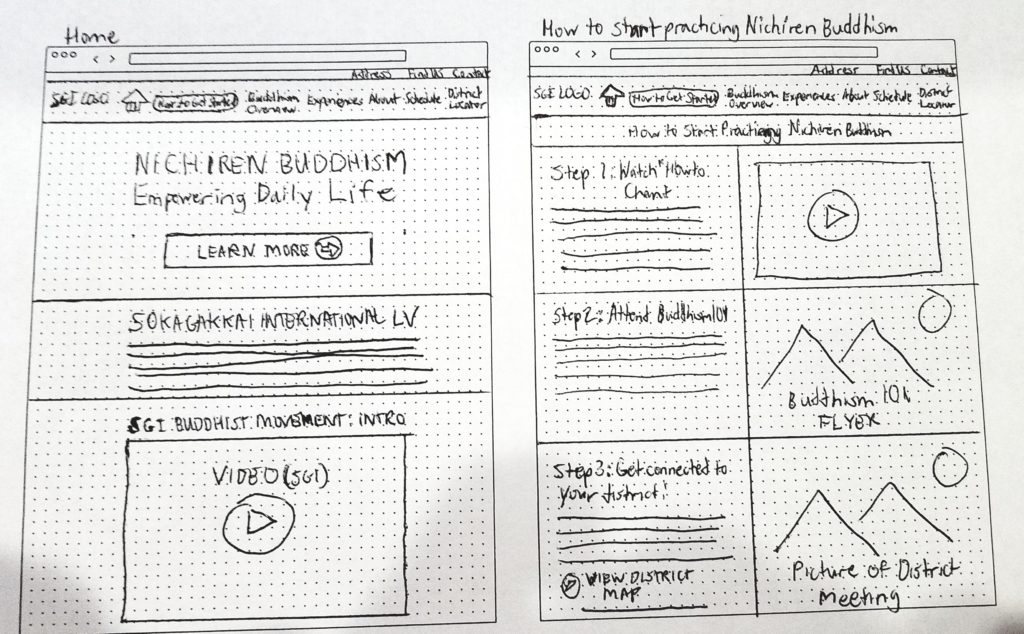 Home
Address Find Us Contact
SGI LOGO How to Get Started Buddhism Overview Experiences About Schedule District Locator
NICHIREN BUDDHISM
Empowering Daily Life
LEARN MORE
SOKAGAKKAI INTERNATIONAL LV
SGI BUDDHIST MOVEMENT: INTRO
VIDEO (SGI)
How to start practicing Nichiren Buddhism
Address Find Us Contact
SGI LOGO How to Get Started Buddhism Overview Experiences About Schedule District Locator
How to Start Practicing Nichiren Buddhism
Step 1: Watch "How to
Chant
Step 2: Attend Buddhism 101
Buddhism 101
FLYER
Step 3: Get connected to
your district!
VIEW DISTRICT
MAP
Picture of District
Meeting